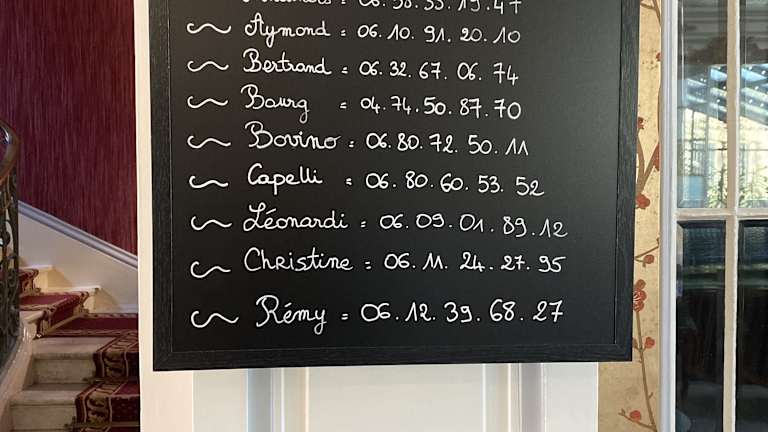 ~ Aymond = 06.10.91.20.10
~ Bertrand = 06.32.67.06.74
~ Bourg = 04.74.50.87.70
~ Bovino = 06.80.72.50.11
~ Capelli = 06.80.60.53.52
~ Léonardi = 06.09.01.89.12
~ Christine = 06.11.24.27.95
~ Rémy = 06.12.39.68.27